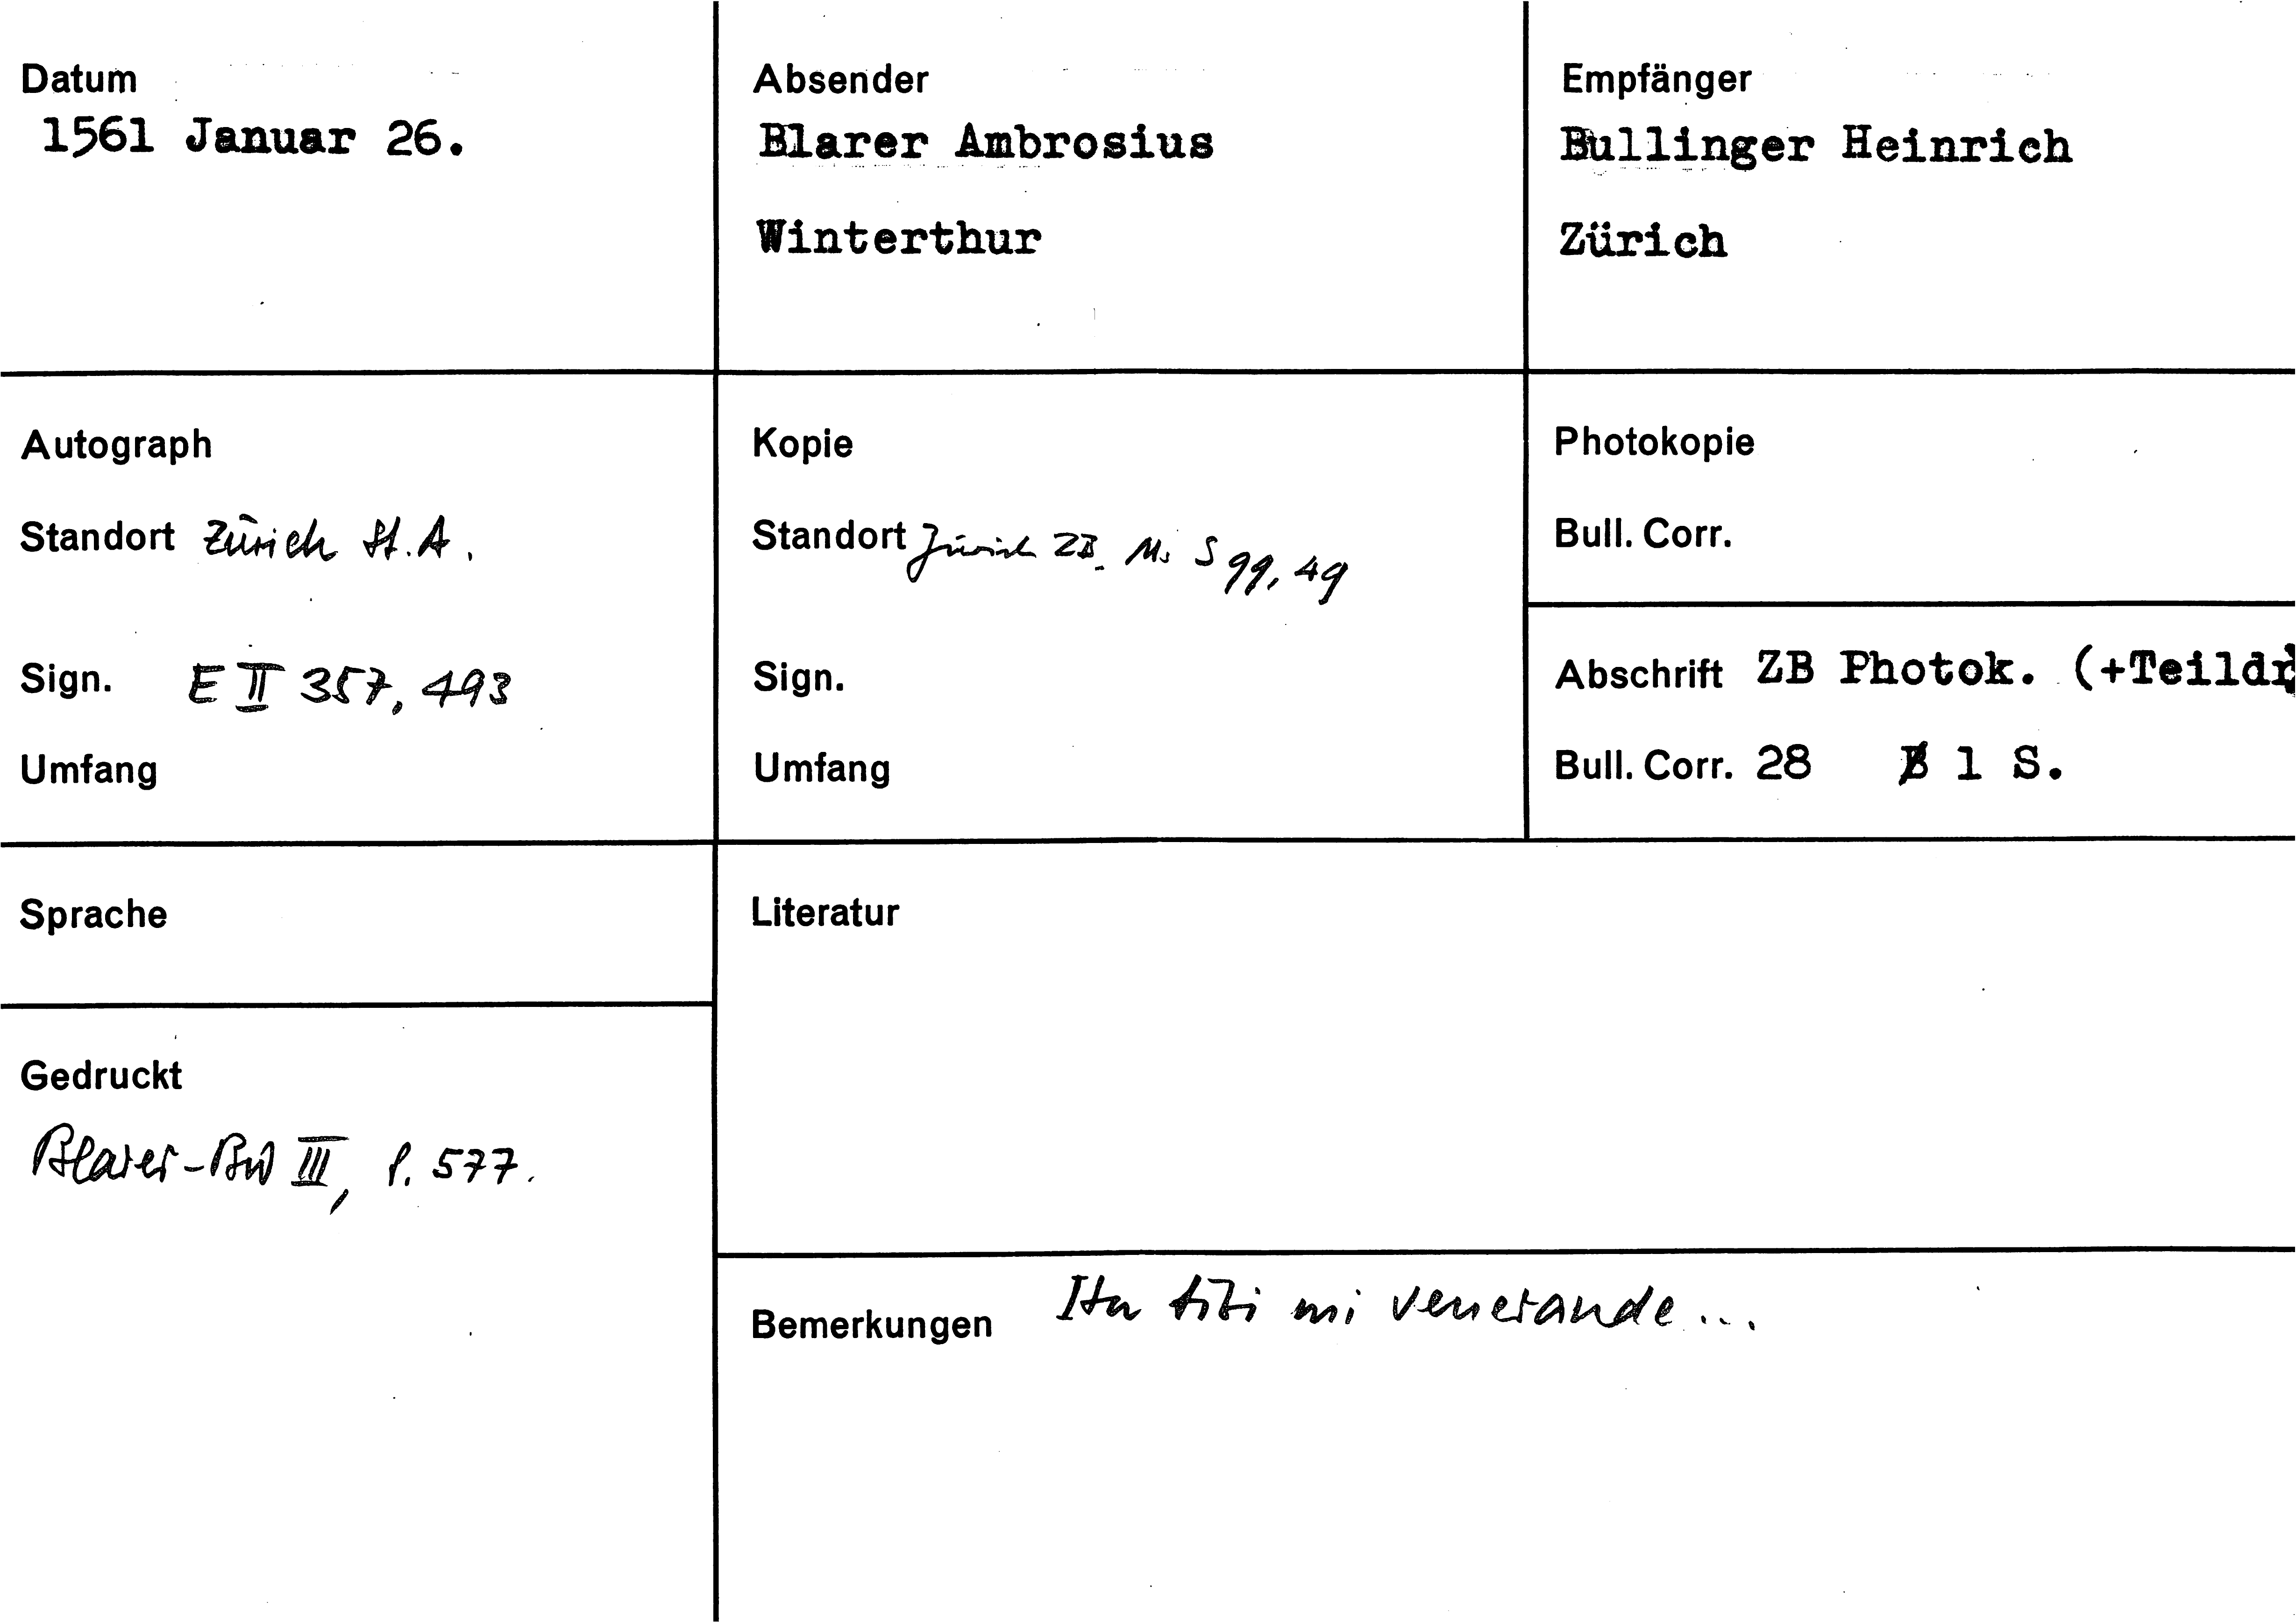 Datum
1561 Januar 26.
Absender
Blarer Ambrosius
Winterthur
Empfänger
Bullinger Heinrich
Zürich
Autograph
Standort Zürich St.A.
Sign. E II 357, 493
Umfang
Kopie
Standort Zürich ZB. Ms S 99, 49
Sign.
Umfang
Photokopie
Bull. Corr.
Abschrift ZB Photok. (+Teildr
Bull. Corr. 28 1 S.
Sprache
Gedruckt
Blarer-Bw III, S. 577.
Literatur
Bemerkungen Ita tibi mi venerande...